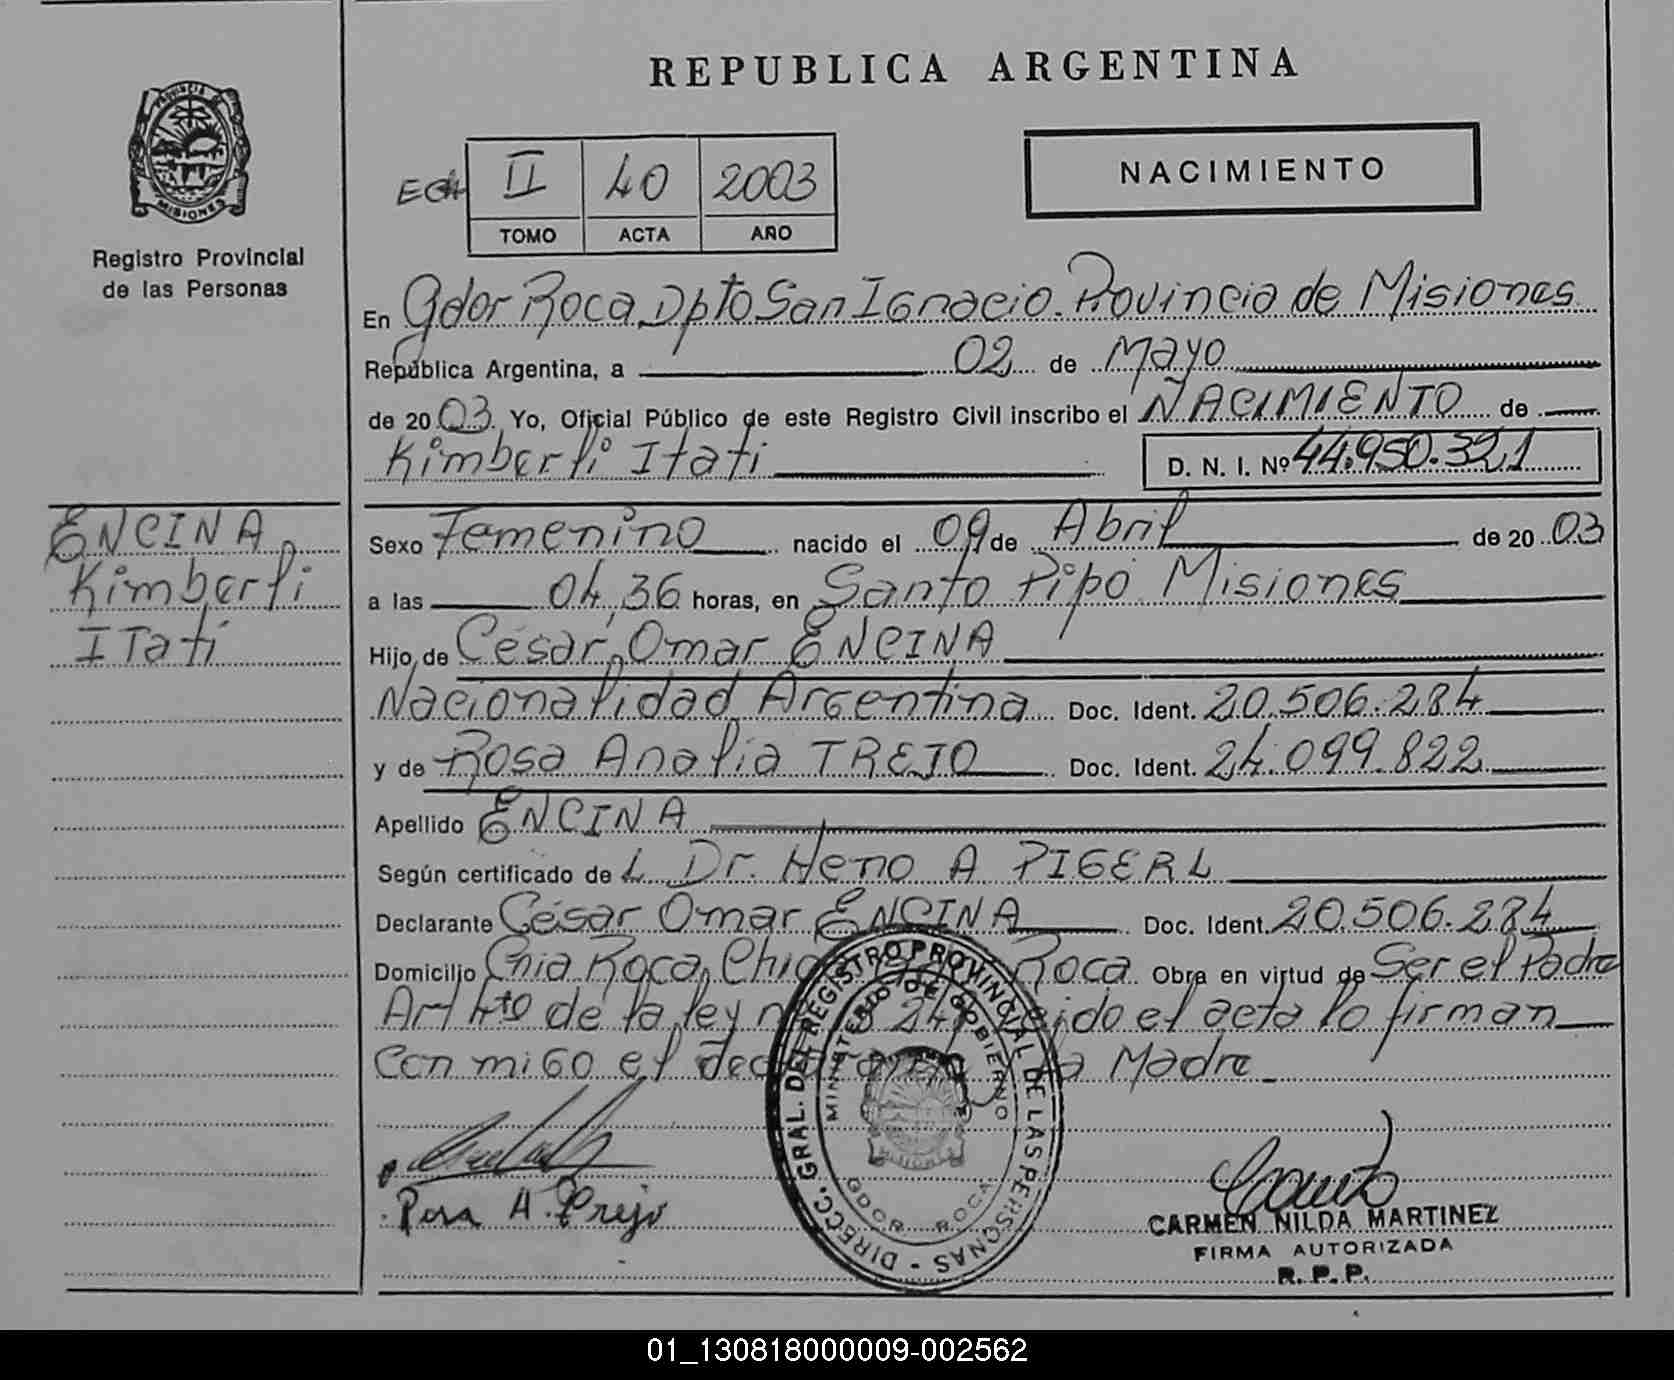 REPUBLICA ARGENTINA
PROVINCIA DE
MISIONES
Registro Provincial
de las Personas
II 40 2003
TOMO ACTA AÑO
NACIMIENTO
En Gdor Roca Dpto San Ignacio. Provincia de Misiones
República Argentina, a 02 de Mayo
de 2003. Yo, Oficial Público de este Registro Civil inscribo el NACIMIENTO de
Kimberli Itati D. N. I. Nº 44.950.321
ENCINA
Kimberli
ITati
Sexo Femenino nacido el 09 de Abril de 2003
a las 04,36 horas, en Santo Pipó Misiones
Hijo de César Omar ENCINA
Nacionalidad Argentina Doc. Ident. 20.506.284
y de Rosa Analia TREJO Doc. Ident. 24.099.822
Apellido ENCINA
Según certificado de L Dr. Heno A PIGERL
Declarante César Omar ENCINA Doc. Ident. 20.506.284
Domicilio Cnia Roca, Roca Obra en virtud de Ser el Padre
Art 4to de la ley el acta lo firman
con migo el la Madre
DIRECC. GRAL. DEL REGISTRO PROVINCIAL DE LAS PERSONAS
MINISTERIO DE GOBIERNO
GDOR ROCA
Rosa A. Trejo
CARMEN NILDA MARTINEZ
FIRMA AUTORIZADA
R. P. P.
01_130818000009-002562